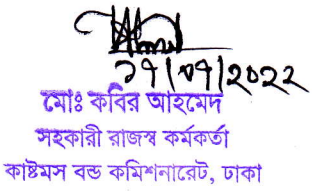 ১৭/০৭/২০২২
মোঃ কবির আহমেদ
সহকারী রাজস্ব কর্মকর্তা
কাষ্টমস বন্ড কমিশনারেট, ঢাকা